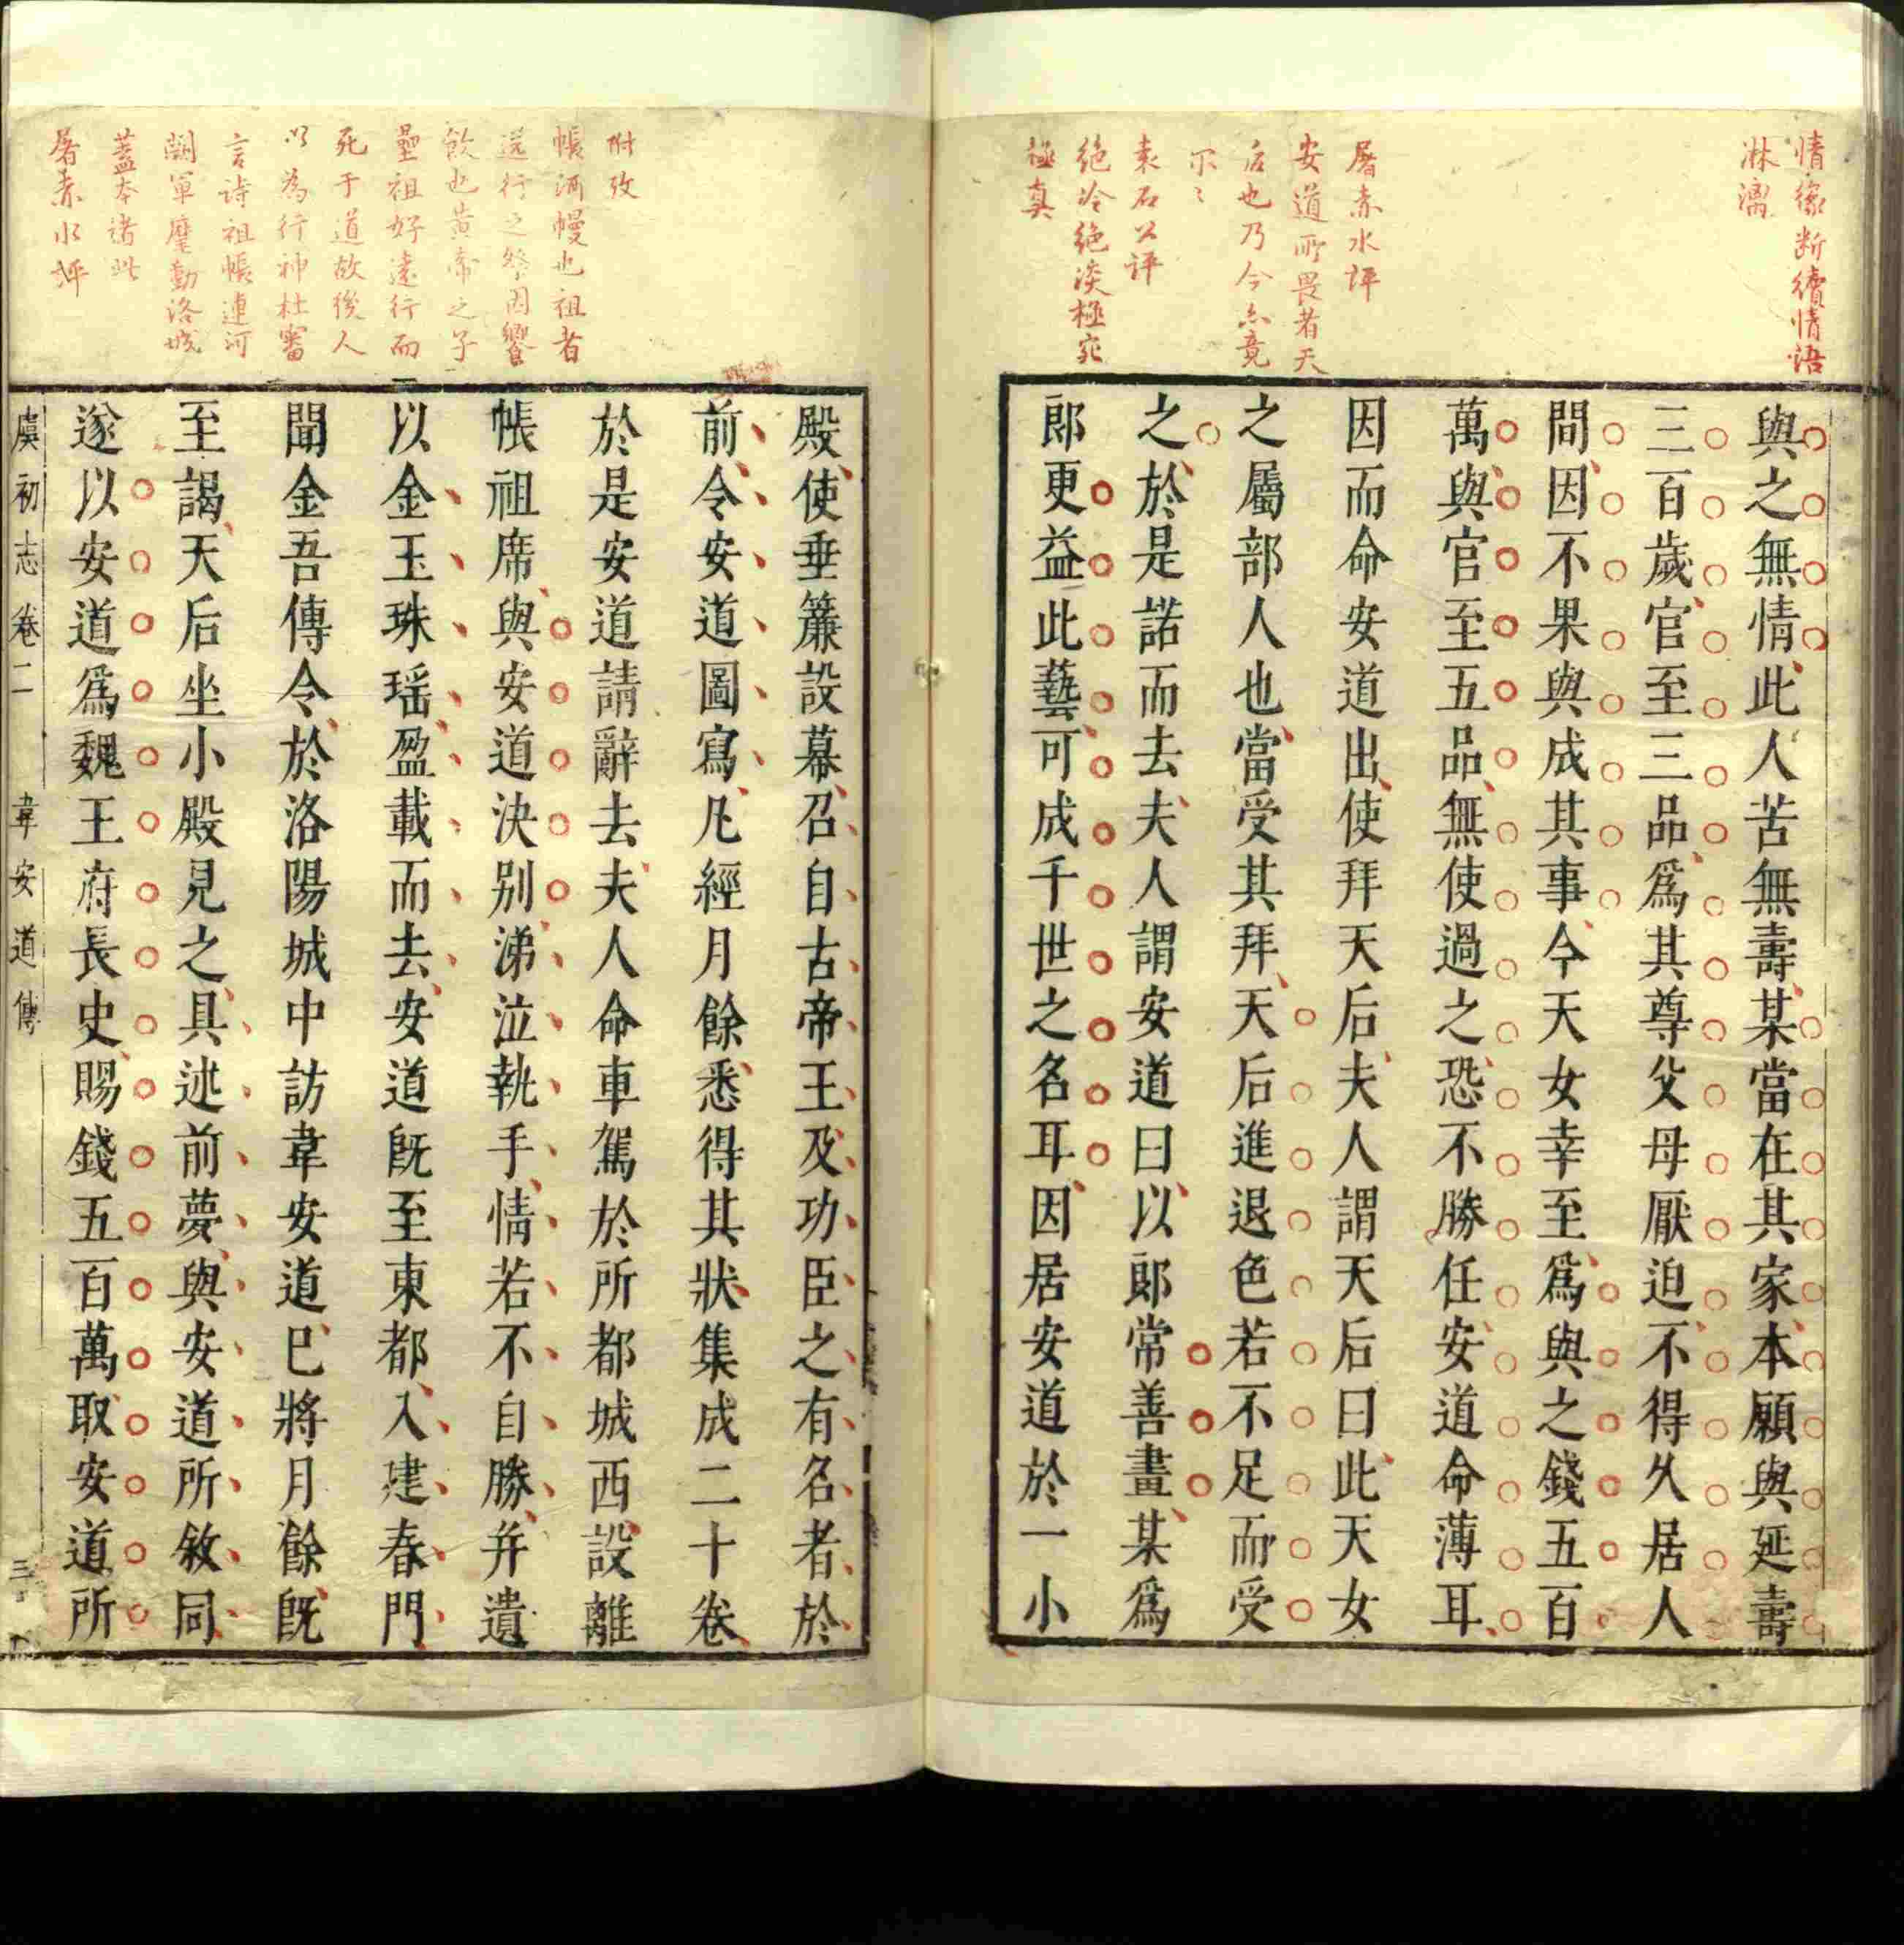 情緣断續情語
淋漓
屠赤水評
安道所畏者天
后也乃今亦竟
尔〻
袁石公評
絶冷絶淡極宛
極真
與之無情此人苦無壽某當在其家本願與延壽
三百歲官至三品爲其尊父母厭迫不得久居人
間因不果與成其事今天女幸至爲與之錢五百
萬與官至五品無使過之恐不勝任安道命薄耳
因而命安道出使拜天后夫人謂天后曰此天女
之屬部人也當受其拜天后進退色若不足而受
之於是諾而去夫人謂安道曰以郎常善畫某爲
郎更益此藝可成千世之名耳因居安道於一小
附攷
帳洒幔也祖者
送行之祭因饗
飲也黃帝之子
壘祖好遠行而
死于道故後人
以為行神杜審
言詩祖帳連河
闕軍麾動洛城
蓋本諸此
屠赤水評
殿使垂簾設幕召自古帝王及功臣之有名者於
前令安道圖寫凡經月餘悉得其狀集成二十卷
於是安道請辭去夫人命車駕於所都城西設離
帳祖席與安道決别涕泣執手情若不自勝并遺
以金玉珠瑶盈載而去安道既至東都入建春門
聞金吾傳令於洛陽城中訪韋安道已將月餘既
至謁天后坐小殿見之具述前夢與安道所敘同
遂以安道爲魏王府長史賜錢五百萬取安道所
虞初志卷二 韋安道傳 三